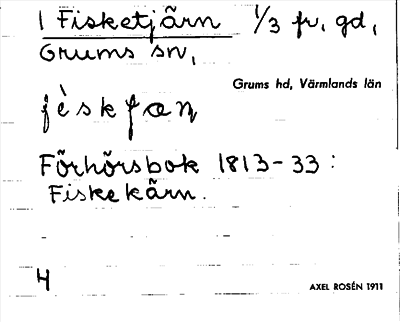 1 Fisketjärn 1/3 fr, gd,
Grums sn,
Grums hd, Värmlands län
Förhörsbok 1813-33:
Fiskekärn.
4
AXEL ROSÉN 1911